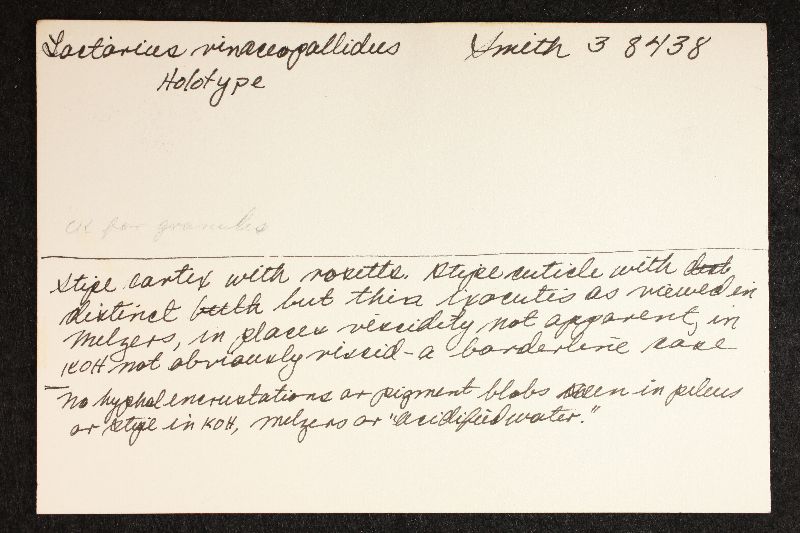 Lactarius vinaceopallidus Smith 38438
Holotype
ck for granules
Stipe cortex with rosetts. Stipe cuticle with dist
distinct but thin ixocutis as viewed in
Melzers, in places viscidity not apparent, in
KOH not obviously viscid - a borderline case
No hyphal encrustations or pigment blobs seen in pileus
or stipe in KOH, Melzers or "acidified water."